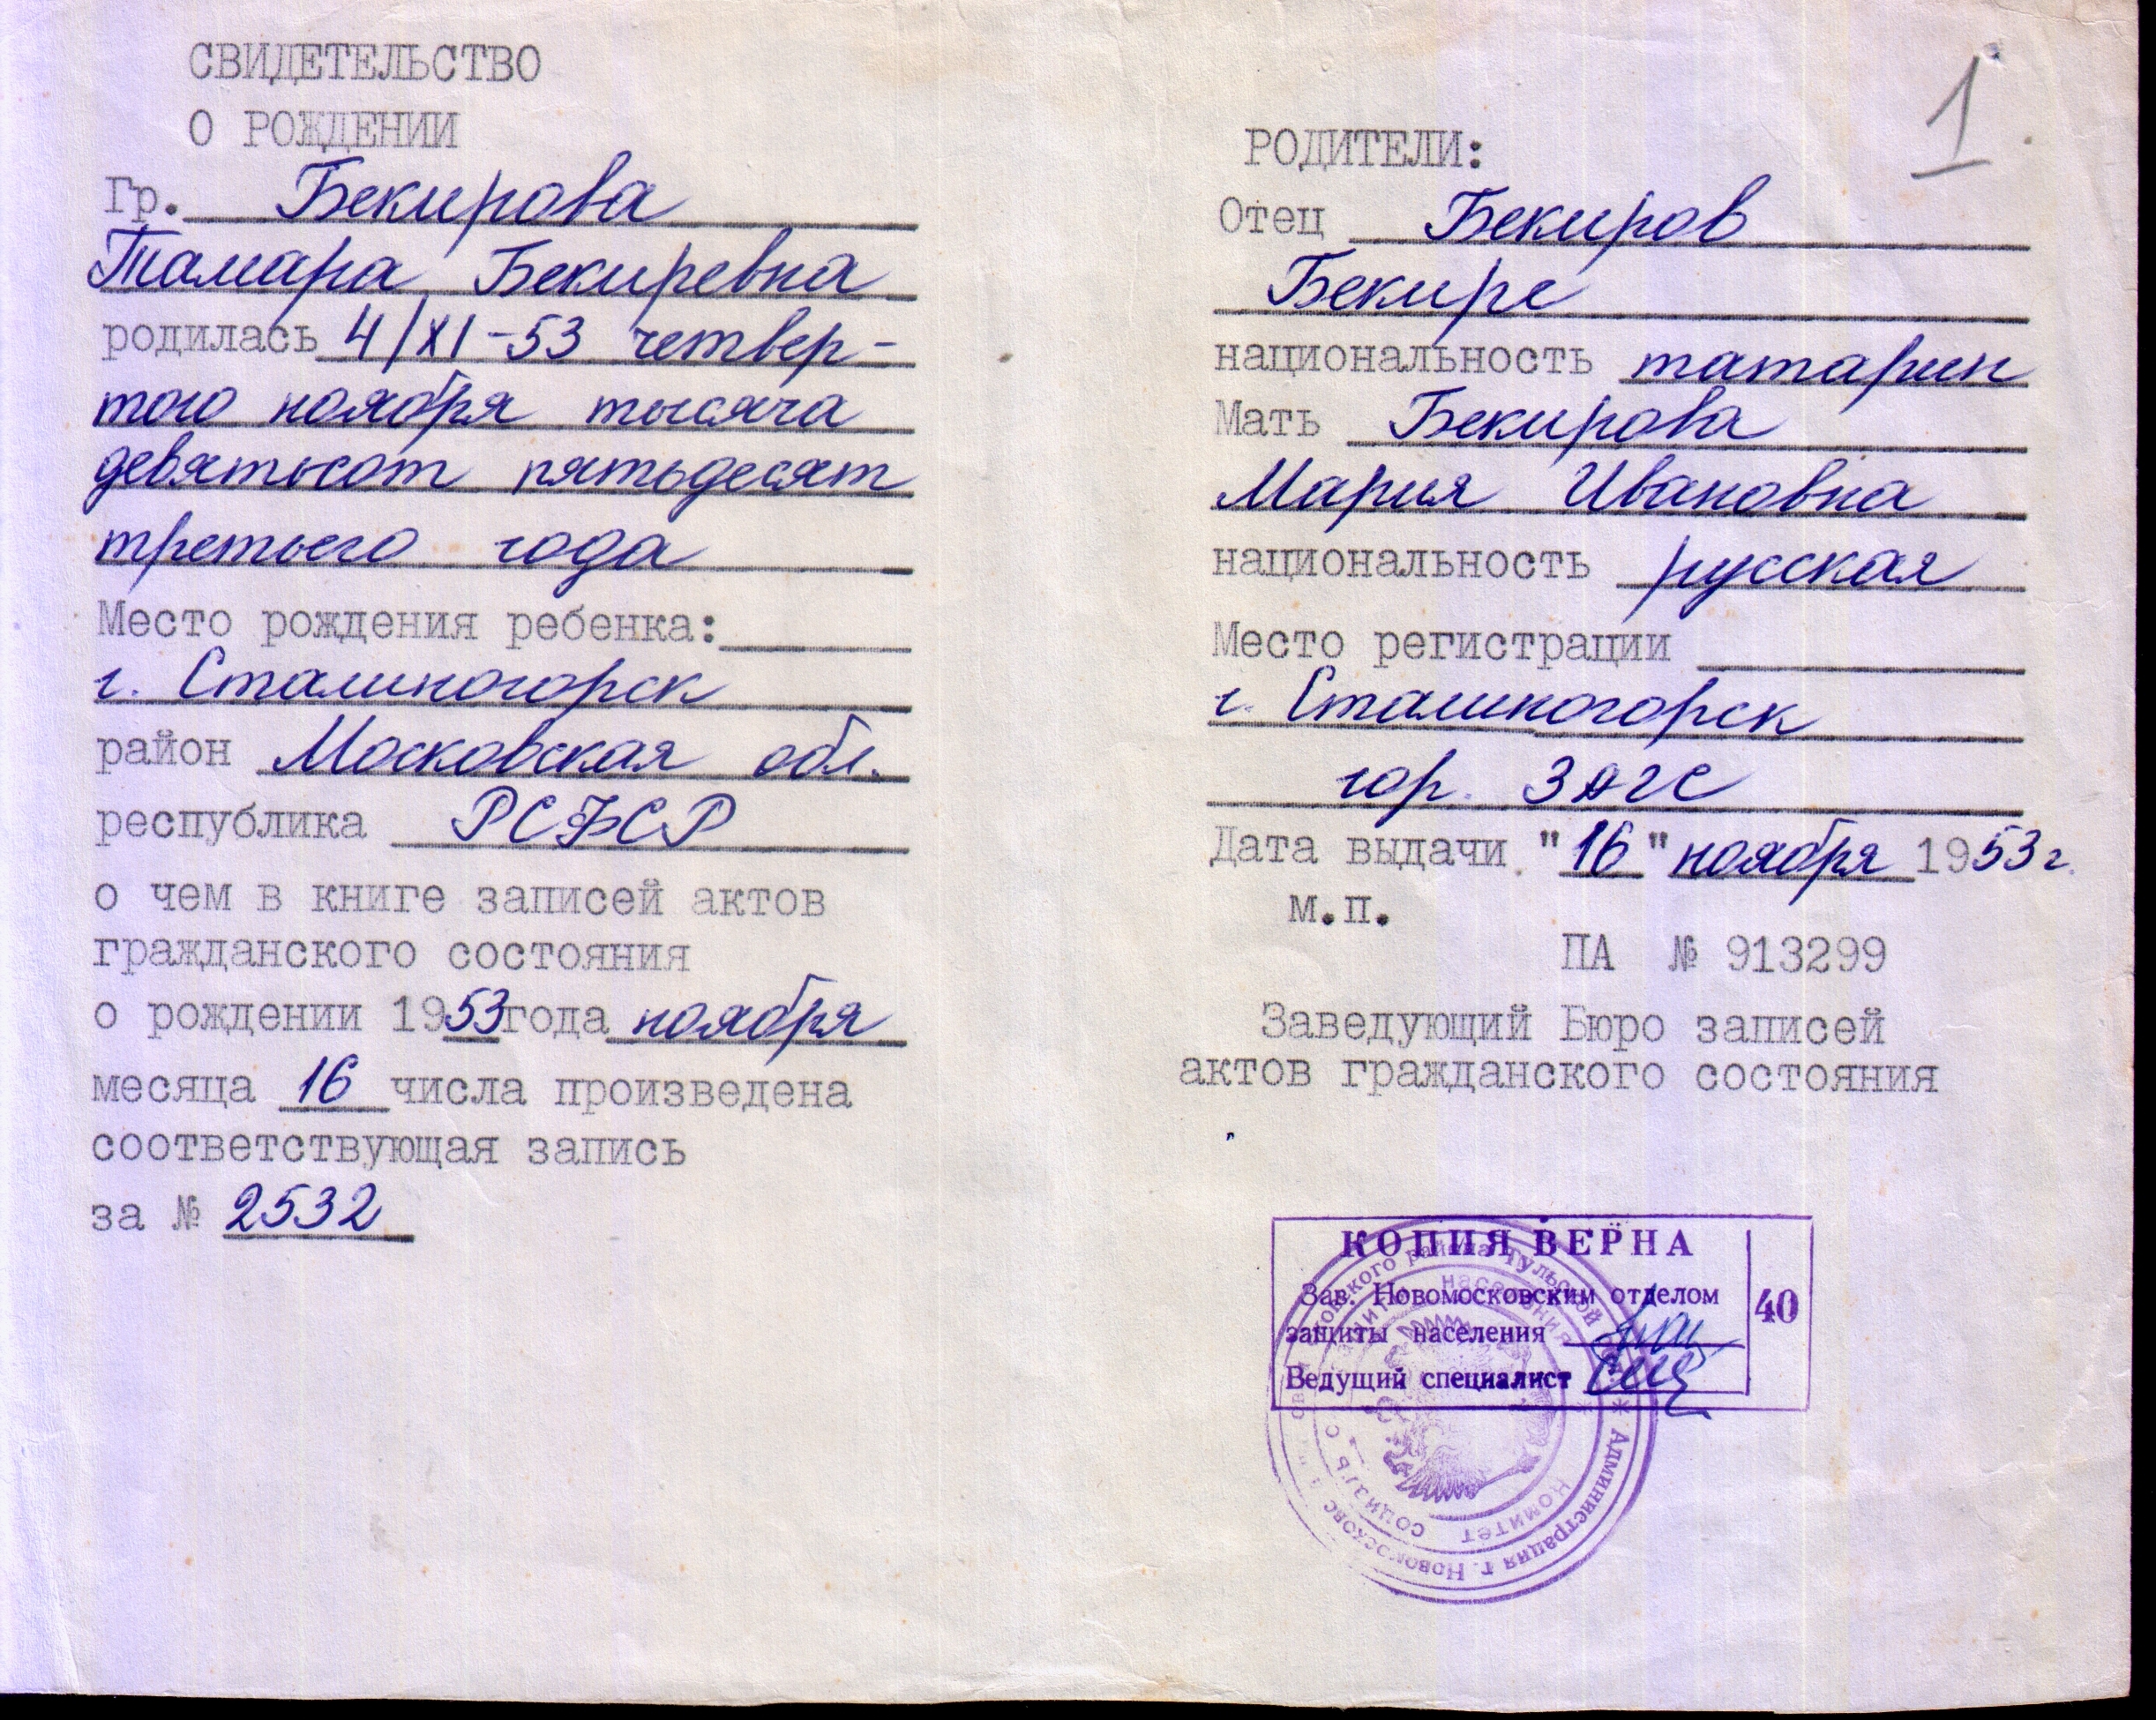 СВИДЕТЕЛЬСТВО
О РОЖДЕНИИ
Гр. Бекирова
Тамара Бекиревна
родилась 4/XI-53 четвер-
того ноября тысяча
девятьсот пятьдесят
третьего года
Место рождения ребенка:
г. Сталиногорск
район Московская обл.
республика РСФСР
о чем в книге записей актов
гражданского состояния
о рождении 1953 года ноября
месяца 16 числа произведена
соответствующая запись
за № 2532
1
РОДИТЕЛИ:
Отец Бекиров
Бекире
национальность татарин
Мать Бекирова
Мария Ивановна
национальность русская
Место регистрации
г. Сталиногорск
гор. ЗАГС
Дата выдачи "16" ноября 1953 г.
м.п.
ПА № 913299
Заведующий Бюро записей
актов гражданского состояния
КОПИЯ ВЕРНА
Зав. Новомосковским отделом
защиты населения
Ведущий специалист
40
района Тульской
Администрация г. Новомосковс
комитет
населения